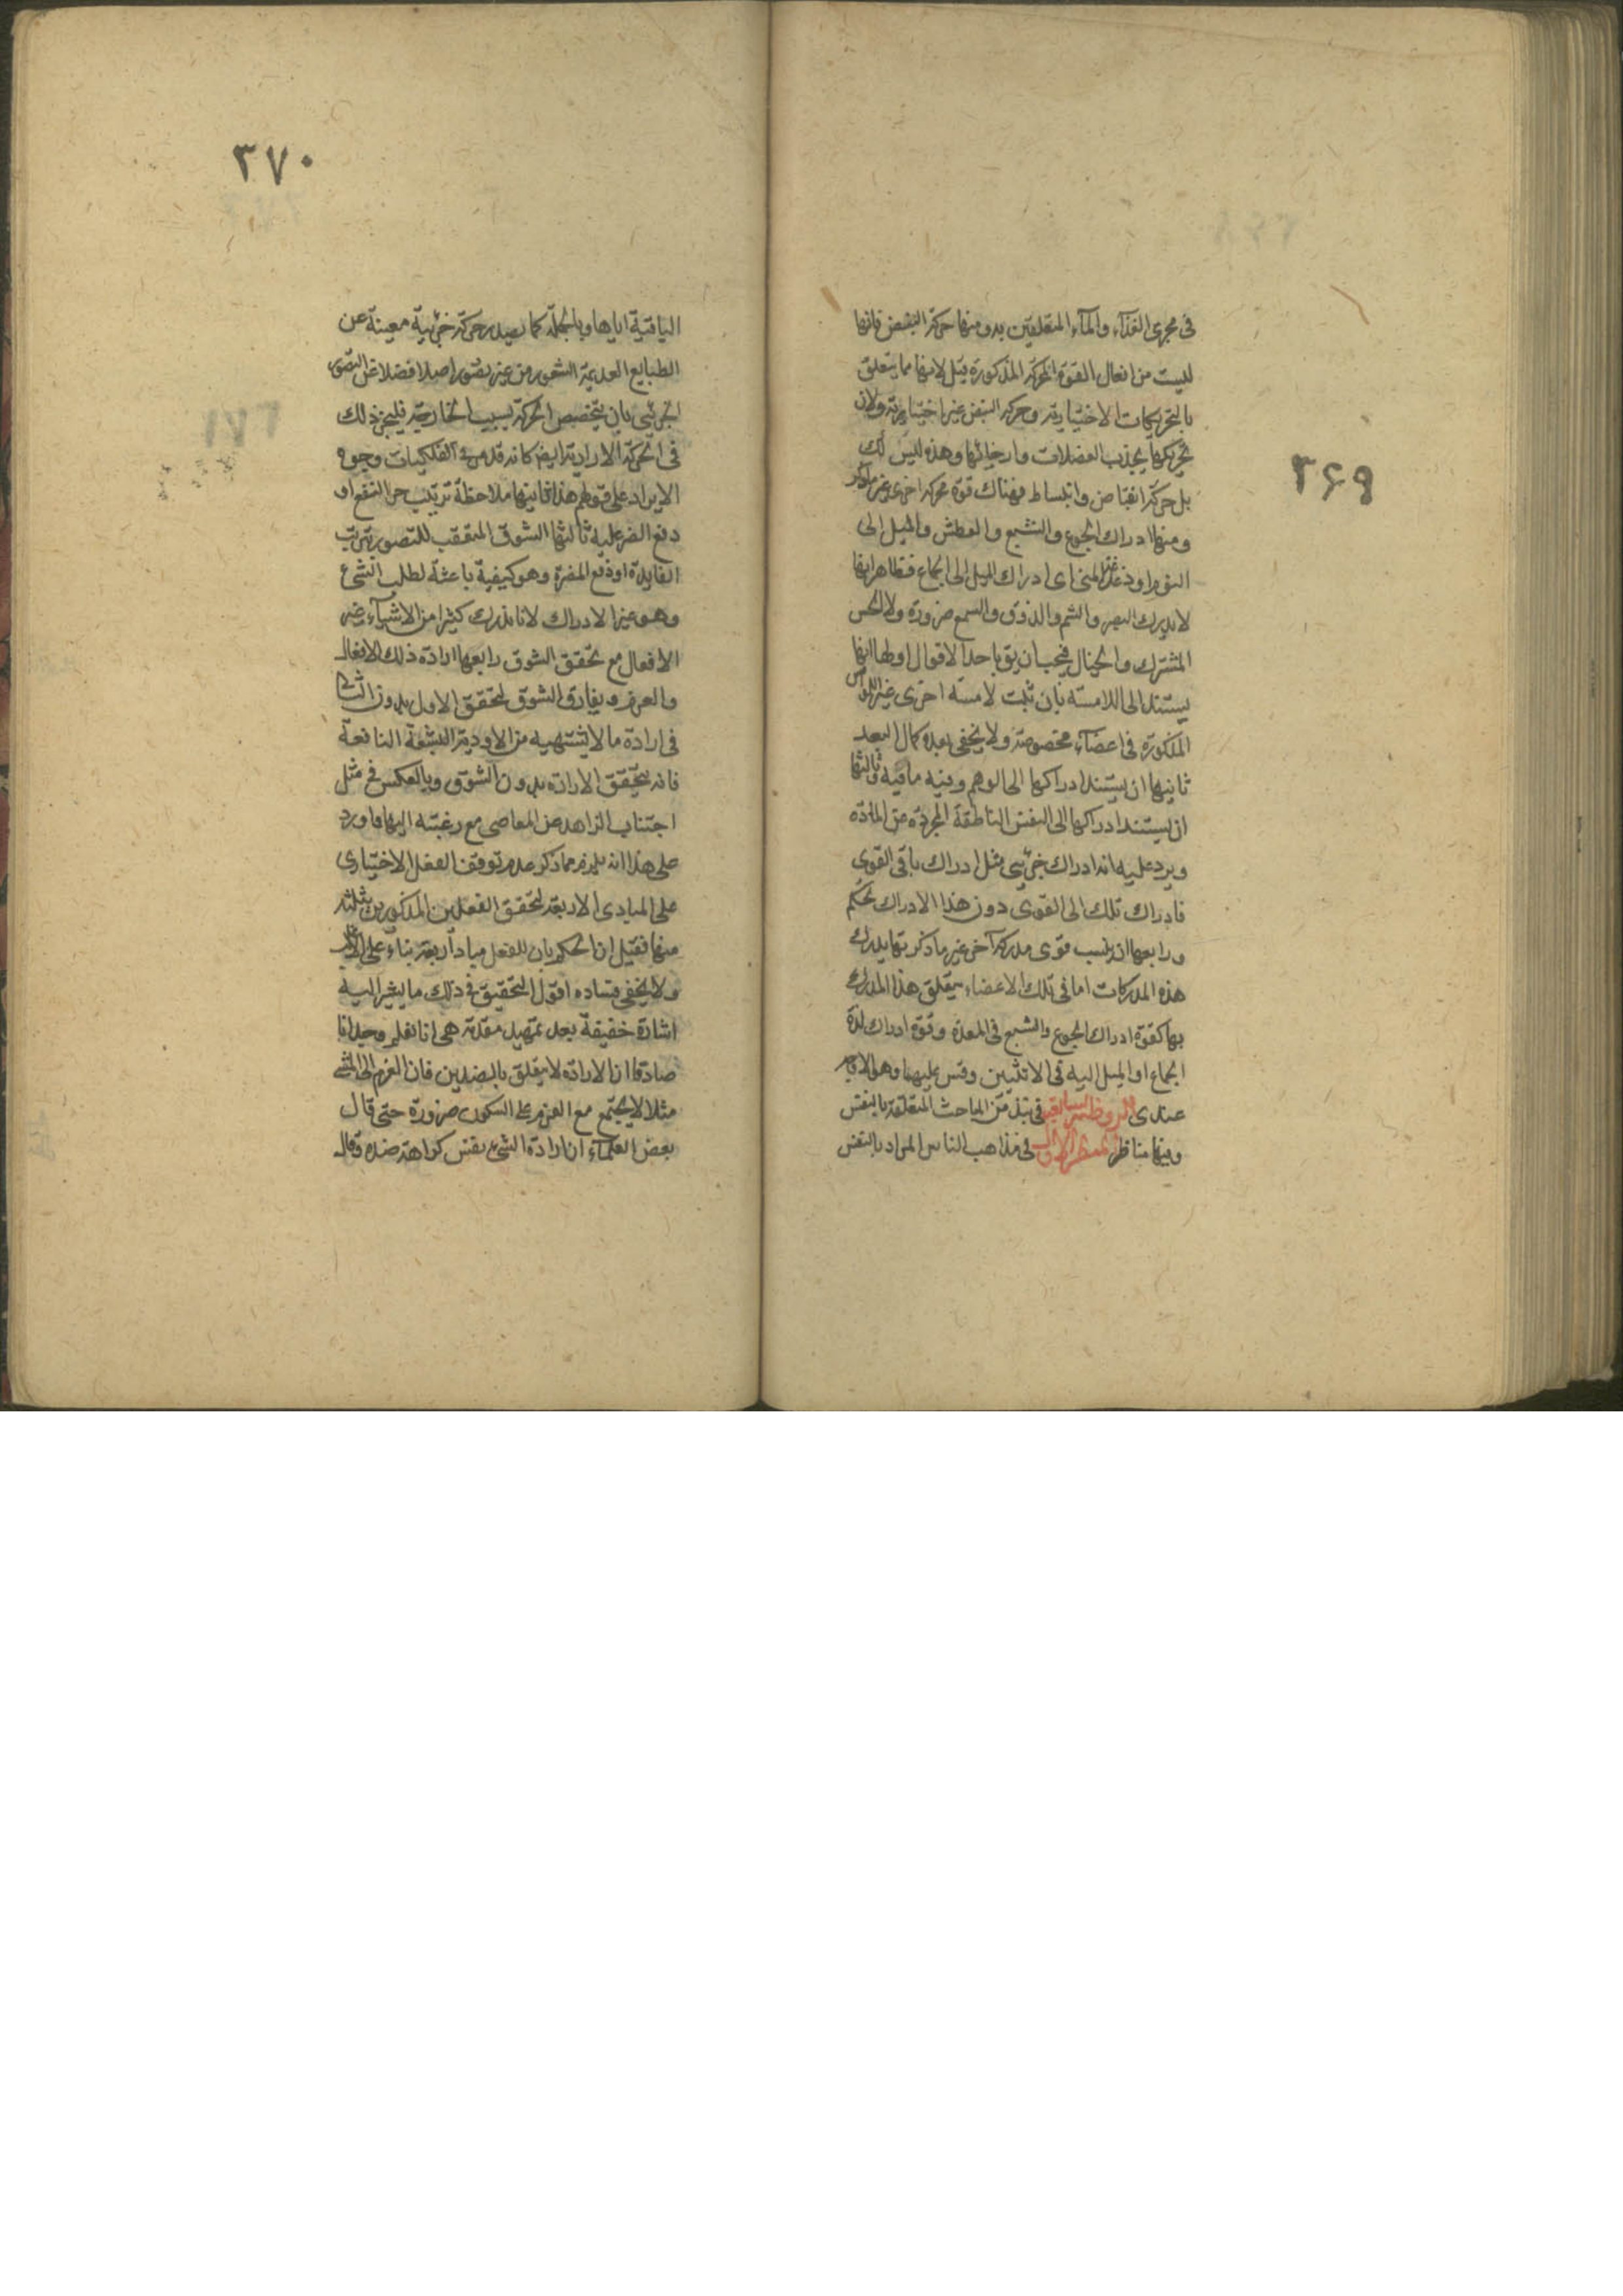 ۳۶۹
فى مجرى الغذآء والمآء المتعلقين بدو منها حركة النبض فانها
ليست من افعال القوة المحركة المذكورة قيل لانها مما يتعلق
بالتحريكات الاختيارية وحركة النبض غير اختيارية ولان
تحريكها بجذب العضلات وارخائها وهذه ليس كك
بل حركة انقباض وانبساط فهناك قوة محركة اخرى غير ما ذكر
ومنها ادراك الجوع والشبع والعطش والميل الى
النوم او دغدغة المنى اى ادراك الميل الى الجماع فظاهر انها
لا يدرك البصر والشم والذوق والسمع ضرورة ولا الحس
المشترك والخيال فيجب ان يق باحد الاقوال اولها انها
يستند الى اللامسة بان ثبت لامسة اخرى غير
المذكورة فى اعضآء مخصوصة ولا يخفى بعده كمال البعد
ثانيها ان يستند ادراكها الى الوهم وفيه ما فيه وثالثها
ان يستند ادراكها الى النفس الناطقة المجردة عن المادة
ويرد عليه انه ادراك جزئى مثل ادراك باقى القوى
فادراك تلك الى القوى دون هذا الادراك تحكم
ورابعها ان ينسب قوى مدركة آخر غير ما ذكر بها يدرك
هذه المدركات اما فى تلك الاعضاء يتعلق هذا المدرك
بها كقوة ادراك الجوع والشبع فى المعدة وقوة ادراك لذة
الجماع او الميل اليه فى الانثيين وقس عليهما وهو الاقرب
عندى الروضة السابعة فى نبذ من المباحث المتعلقة بالنفس
وفيها مناظر المنظر الاول فى مذاهب الناس المراد بالنفس
۳۷۰
الباقية اياها وبالجملة كما يصدر حركة جزئية معينة عن
الطبايع العديمة الشعور من غير تصور اصلا فضلا عن التصور
الجزئى بان يتخصص الحركة بسبب الخارجية فليجز ذلك
فى الحركة الارادية ايضا كانه قد مر فى الفلكيات وجوه
الايراد على قولهم هذا ثانيها ملاحظة ترتب جر النفع او
دفع الضر عليه ثالثها الشوق المتعقب للتصور بترتب
الفايدة او دفع المضرة وهو كيفية باعثة لطلب الشئ
وهو غير الادراك لانا ندرك كثيرا من الاشيآء
الافعال مع تحقق الشوق رابعها ارادة ذلك الافعال
والعزم ويفارق الشوق لتحقق الاول بدون الثانى
فى ارادة ما لا يشتهيه من الاودية البشعة النافعة
فانه يتحقق الارادة بدون الشوق وبالعكس فى مثل
اجتناب الزاهد عن المعاصى مع رغبته اليها واورد
على هذا انه يلزم مما ذكر عدم توقف الفعل الاختيارى
على المبادى الاربعة لتحقق الفعلين المذكورين بثلثة
منها فقيل ان الحكم بان للفعل مباد اربعة بناء على الاكثر
ولا يخفى فساده اقول التحقيق فى ذلك ما يشير اليه
اشارة خفيفة بعد تمهيد مقدمة هى انا نعلم وجدانا
صادقا ان الارادة لا يتعلق بالضدين فان العزم الى المشى
مثلا لا يجتمع مع العزم على السكون ضرورة حتى قال
بعض العلمآء ان ارادة الشئ نفس كراهة ضده وقال